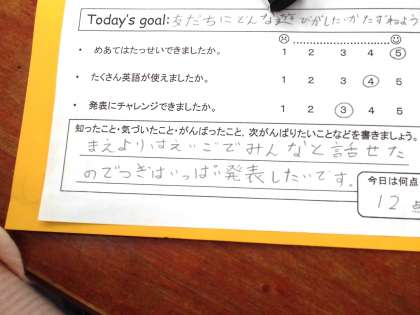 Today's goal: 友だちにどんな遊びがしたいかたずねよう
・ めあてはたっせいできましたか。 1 2 3 4 5
・ たくさん英語が使えましたか。 1 2 3 4 5
・ 発表にチャレンジできましたか。 1 2 3 4 5
知ったこと・気づいたこと・がんばったこと，次がんばりたいことなどを書きましょう。
まえよりはえいごでみんなと話せた
のでつぎはいっぱい発表したいです。
今日は何点
12点